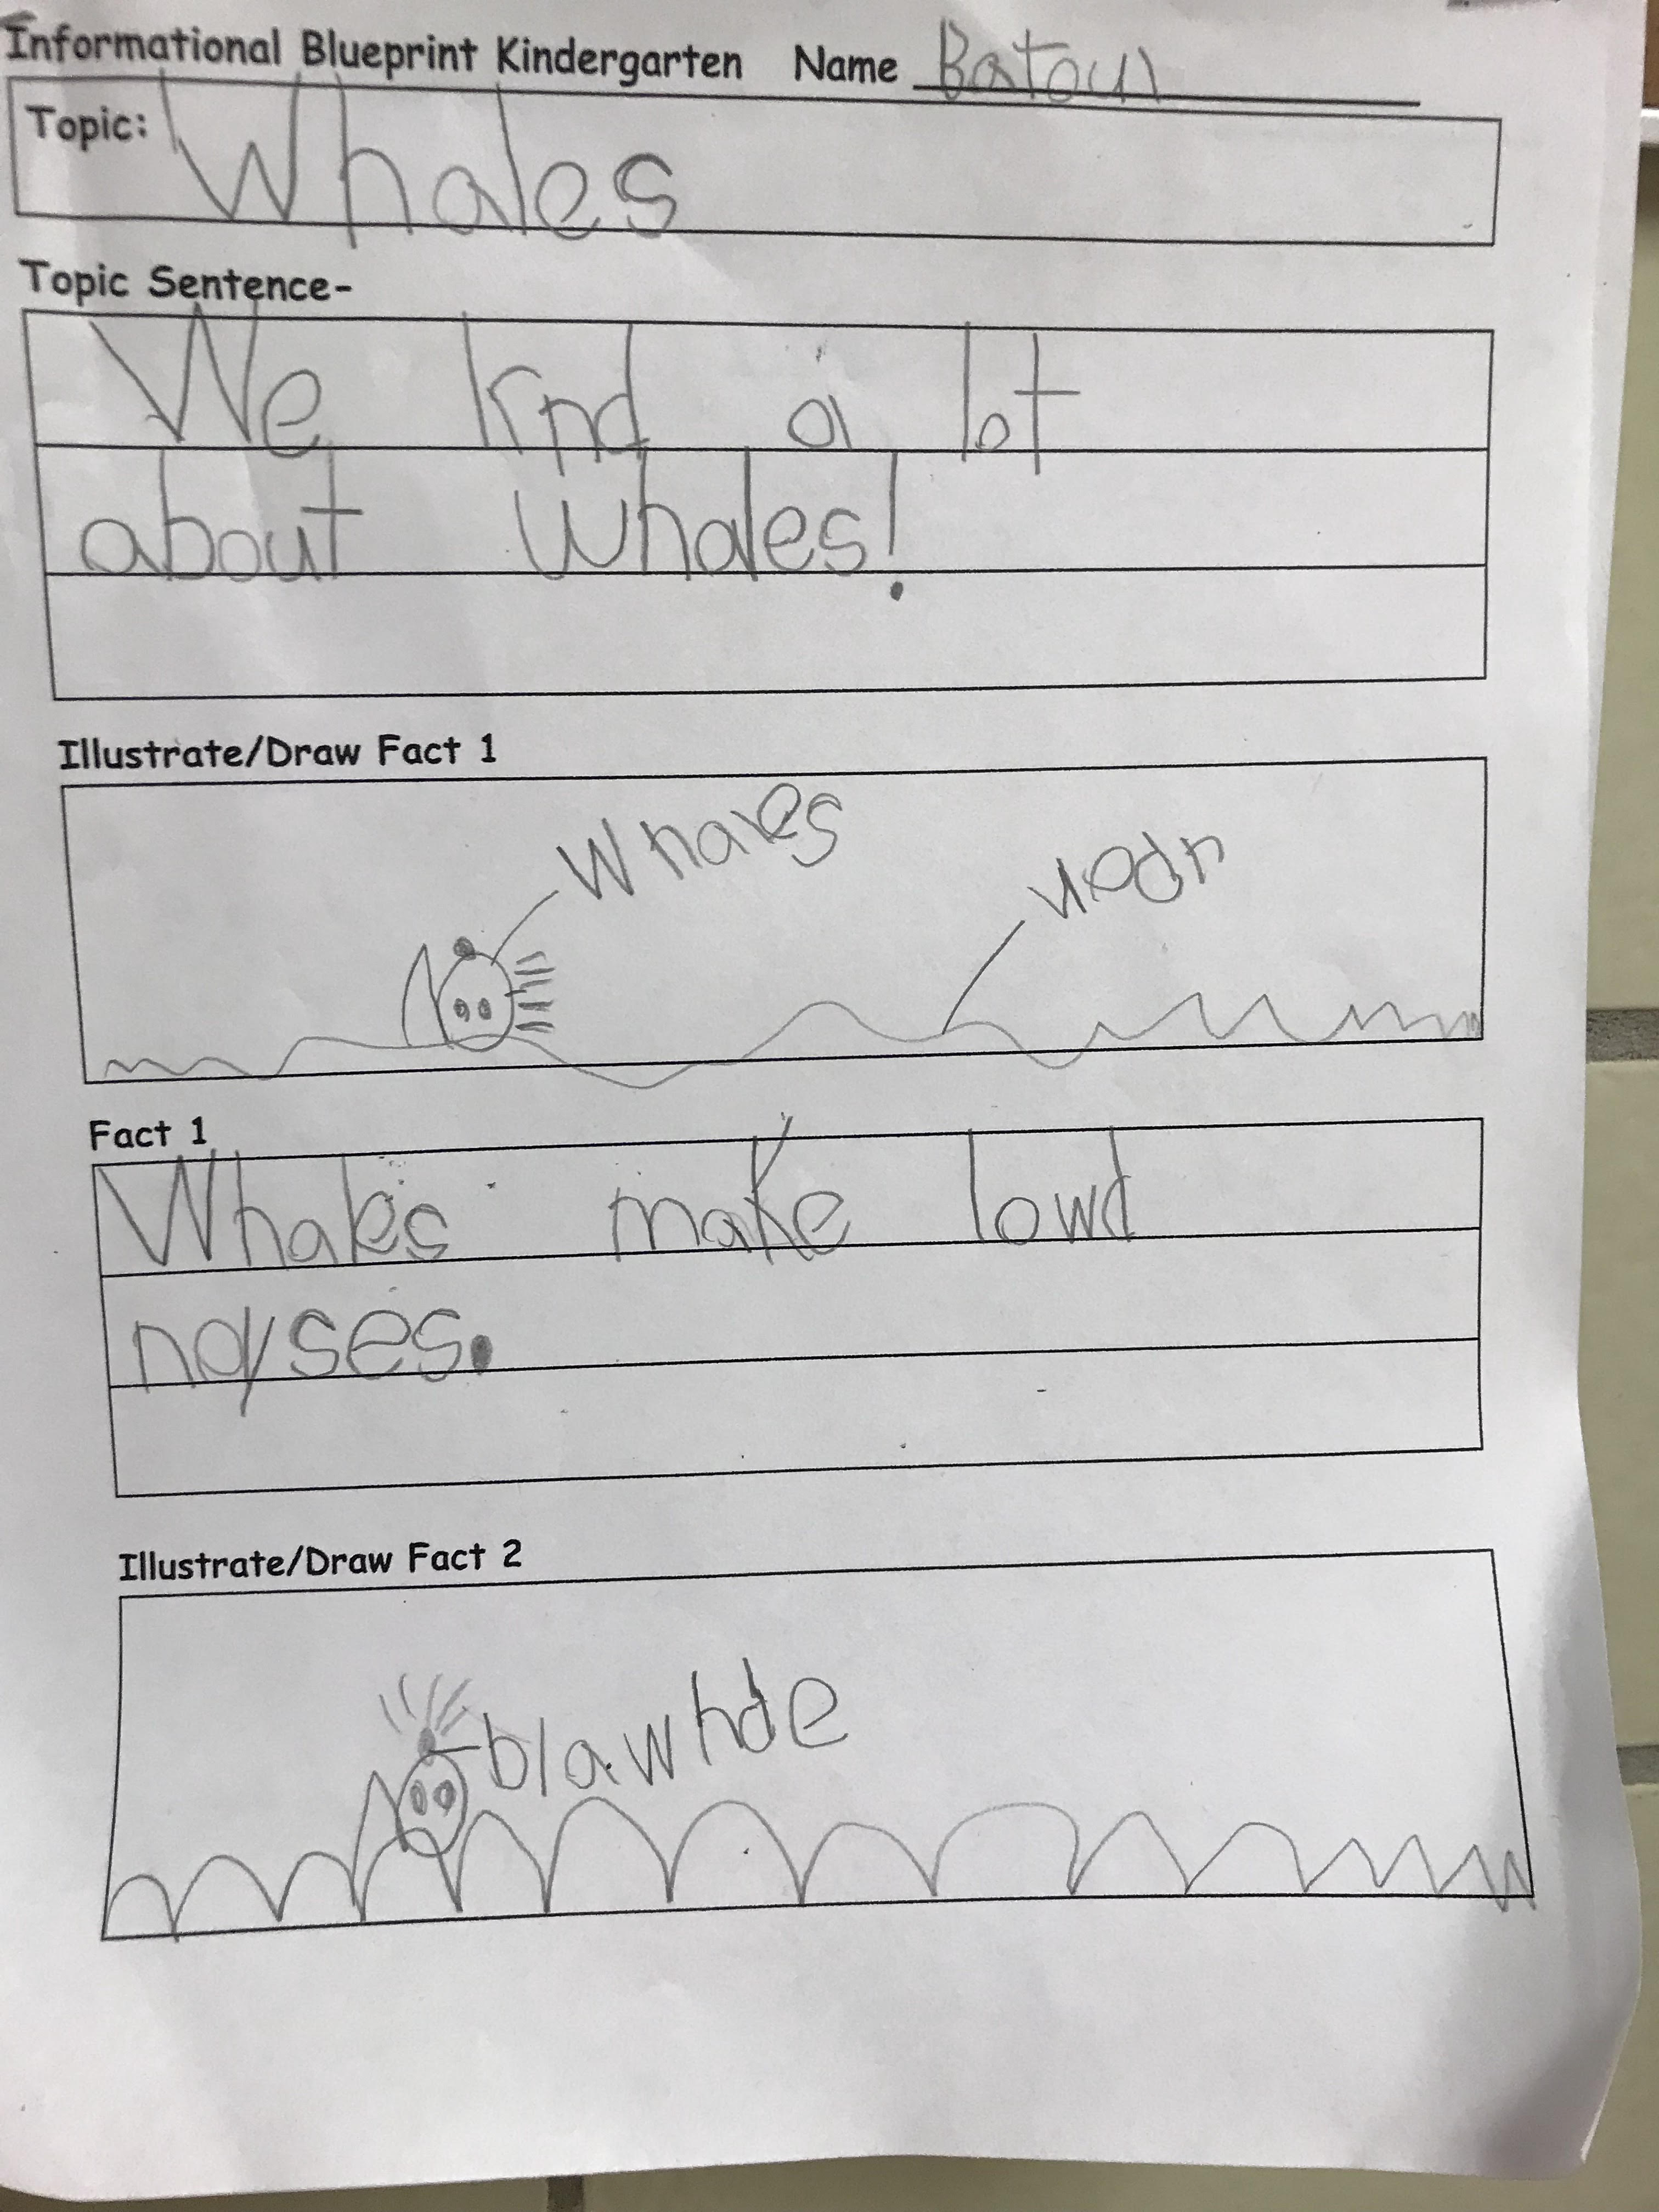 Informational Blueprint Kindergarten Name Batoul
Topic: Whales
Topic Sentence-
We knd a lot
about whales!
Illustrate/Draw Fact 1
Whales
Fact 1
Whales make lowd
noyses.
Illustrate/Draw Fact 2
blawhole